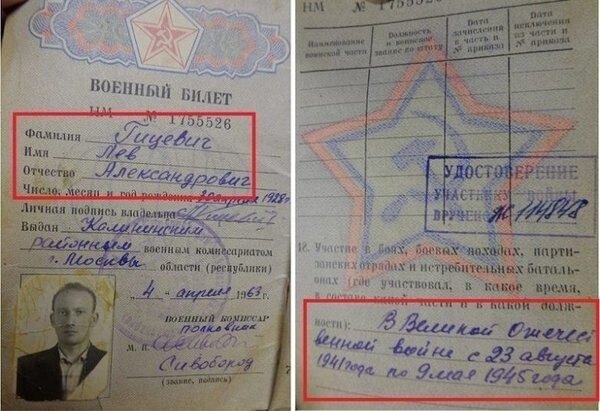 ВОЕННЫЙ БИЛЕТ
НМ № 1755526
Фамилия Гицевич
Имя Лев
Отчество Александрович
Число, месяц и год рождения 20 апреля 1928 г.
Личная подпись владельца
Выдан Калининским
районным военным комиссариатом
г. Москвы области (республики)
„4“ апреля 1963 г.
ВОЕННЫЙ КОМИССАР
полковник
М. П.
Сивобород
(звание, подпись)
НМ № 1755526
Наименование воинской части
Должность и воинское звание по штату
Дата зачисления в часть и № приказа
Дата исключения из части и № приказа
УДОСТОВЕРЕНИЕ
УЧАСТНИКУ ВОЙНЫ
ВРУЧЕНО № 114848
12. Участие в боях, боевых походах, парти-
занских отрядах и истребительных баталь-
онах (где участвовал, в какое время,
в составе какой части и в какой долж-
ности): В Великой Отечест
венной войне с 23 августа
1941 года по 9 мая 1945 года